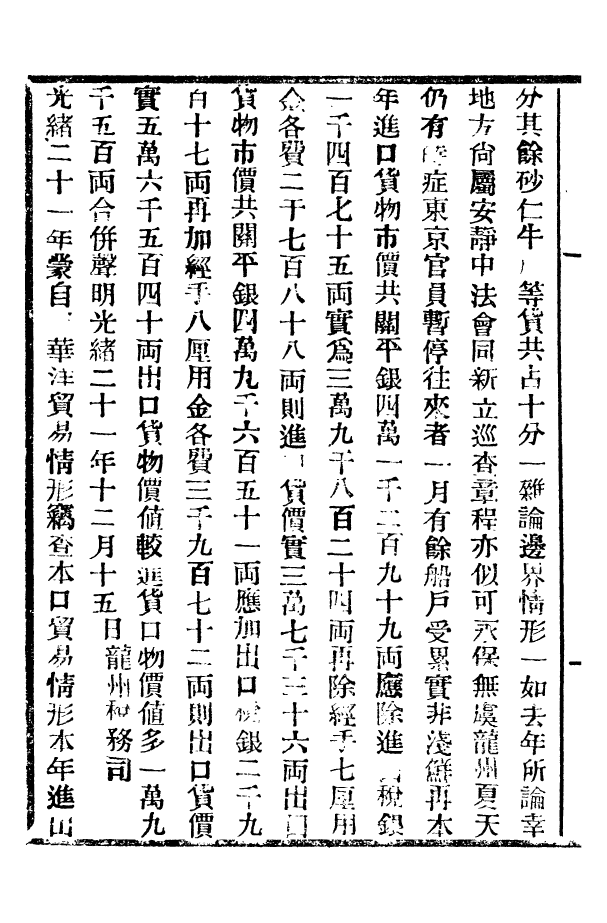 分其餘砂仁牛等貨共占十分一雜論邊界情形一如去年所論幸
地方尙屬安靜中法會同新立巡查章程亦似可永保無虞龍州夏天
仍有症東京官員暫停往來者一月有餘船戶受累實非淺鮮再本
年進口貨物市價共關平銀四萬一千二百九十九両應除進口稅銀
一千四百七十五両實爲三萬九千八百二十四両再除經手七厘用
金各費二千七百八十八両則進口貨價實三萬七千三十六両出口
貨物市價共關平銀四萬九千六百五十一両應加出口稅銀二千九
百十七両再加經手八厘用金各費三千九百七十二両則出口貨價
實五萬六千五百四十両出口貨物價値較進貨口物價値多一萬九
千五百両合併聲明光緒二十一年十二月十五日龍州稅務司
光緒二十一年蒙自華洋貿易情形竊查本口貿易情形本年進出